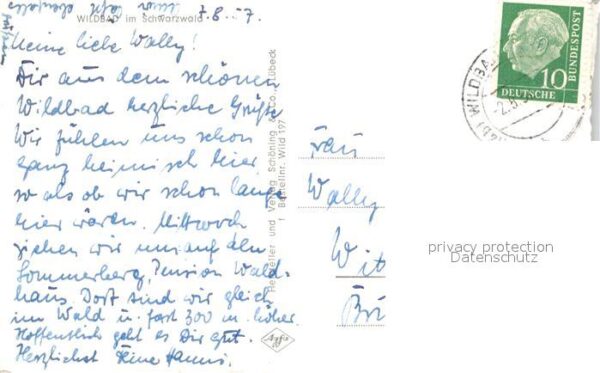 WILDBAD im Schwarzwald
7.8.57.
Meine liebe Wally!
Dir aus dem schönen
Wildbad herzliche Grüße
Wir fühlen uns schon
ganz heimisch hier,
so als ob wir schon lange
hier wären. Mittwoch
ziehen wir um auf den
Sommerberg, Pension Wald-
haus. Dort sind wir gleich
im Wald u. fast 300 m. höher.
Hoffentlich geht es Dir gut.
Herzlichst Deine Hanni.
Hersteller und Verlag Schöning & Co., Lübeck
Bestellnr. Wild 197
Agfa
10
DEUTSCHE
BUNDESPOST
WILDBAD
Frau
Wally
Wit
Br
privacy protection
Datenschutz